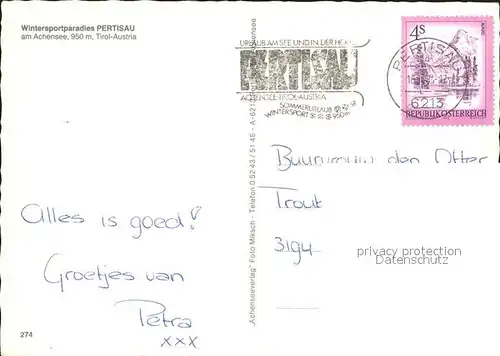 Wintersportparadies PERTISAU
am Achensee, 950 m, Tirol-Austria
URLAUB AM SEE UND IN DER
PERTISAU
ACHENSEE TIROL-AUSTRIA
SOMMERURLAUB
WINTERSPORT 950m
4s
REPUBLIK ÖSTERREICH
PERTISAU
6213
"Achenseeverlag" Foto Miksch - Telefon 0 52 43 / 51 46 - A-6213
den Otter
Trout
3194
privacy protection
Datenschutz
Alles is goed!
Groetjes van
Petra
xxx
274